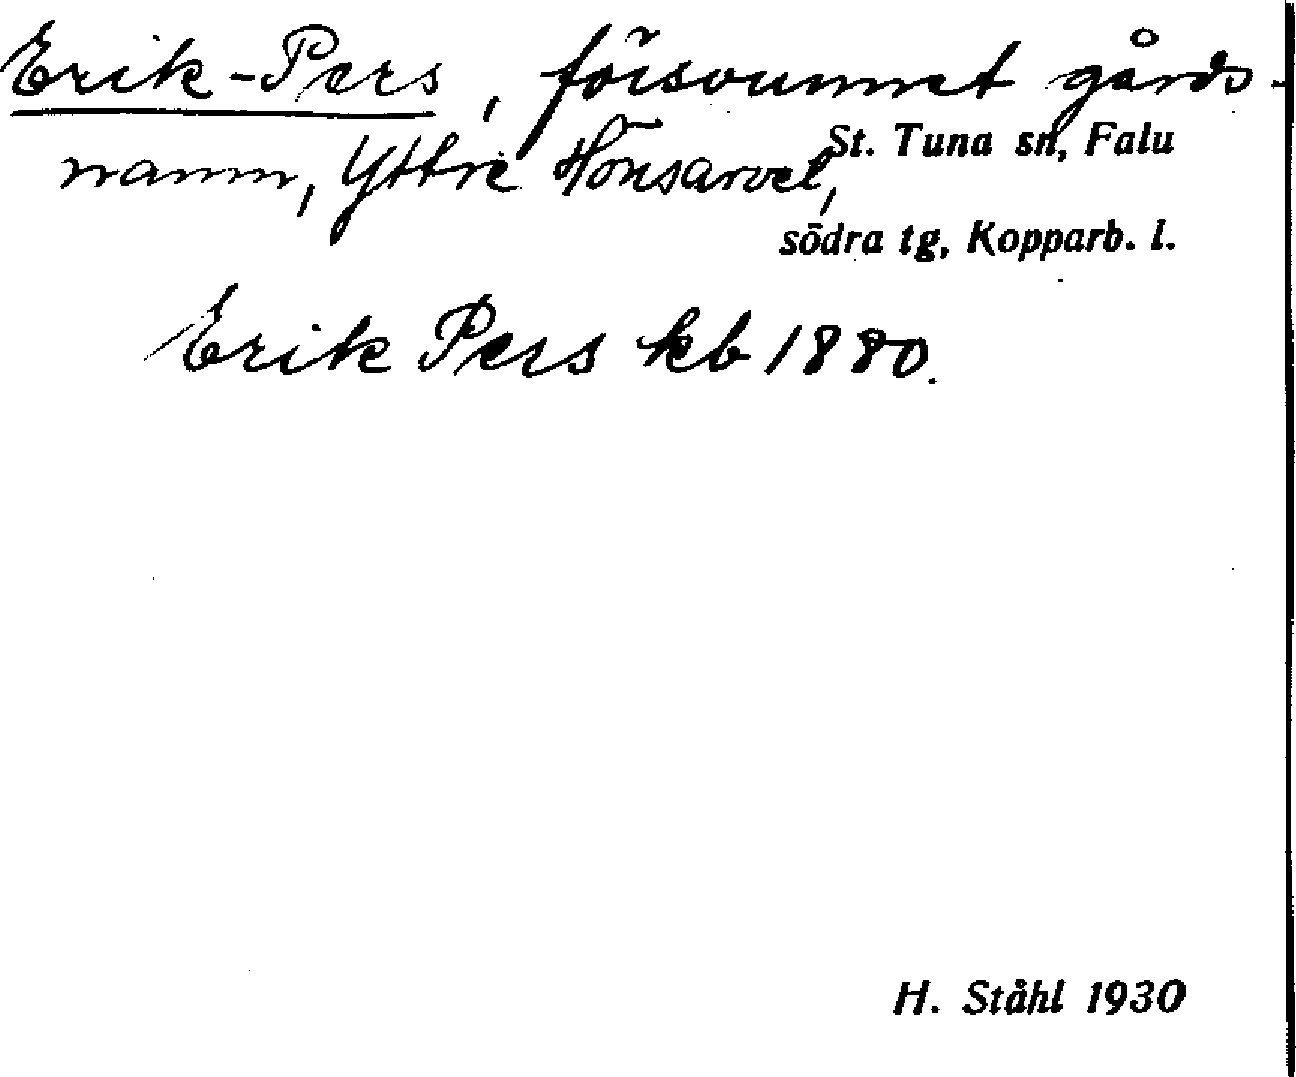 Erik-Pers, försvunnet gårds-
namn, Yttre Hönsarvet,
St. Tuna sn, Falu
södra tg, Kopparb. l.
Erik Pers kb 1880.
H. Ståhl 1930